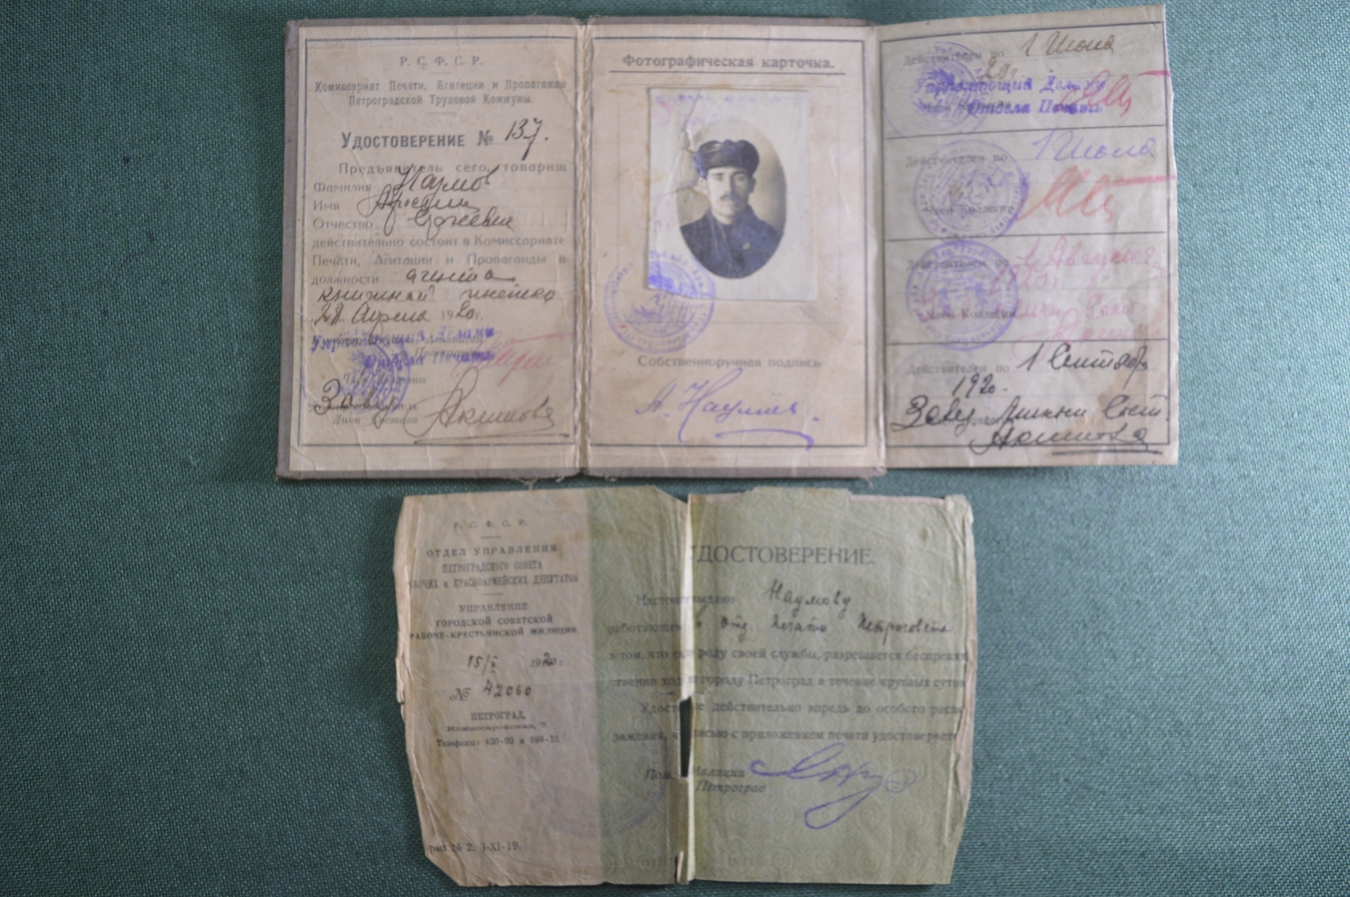 Р. С. Ф. С. Р.
Комиссариат Печати, Агитации и Пропаганды
Петроградской Трудовой Коммуны.
Удостоверение № 137.
Предъявитель сего, товарищ
Фамилия Наумов
Имя
Отчество Сергеевич
действительно состоит в Комиссариате
Печати, Агитации и Пропаганды в
должности агента
книжной
28 Апреля 1920г.
Управляющий Делами
Отдела Печати
Завед.
Акимова
Фотографическая карточка.
Собственноручная подпись
А. Наумов.
Действителен по 1 Июня
20г.
Управляющий Делами
Отдела Печати
Действителен по 1 Июля
Действителен по 1 Августа
1920г.
Действителен по 1 Сентября
1920.
Завед. Личным Сост.
Акимова
Р. С. Ф. С. Р.
ОТДЕЛ УПРАВЛЕНИЯ
ПЕТРОГРАДСКОГО СОВЕТА
БОЧИХ и КРАСНОАРМЕЙСКИХ ДЕПУТАТОВ
УПРАВЛЕНИЕ
ГОРОДСКОЙ СОВЕТСКОЙ
РАБОЧЕ-КРЕСТЬЯНСКОЙ МИЛИЦИИ
15/I 1920г.
№ 42060
ПЕТРОГРАД,
Телефоны:
№ 2. 1-XI-19.
УДОСТОВЕРЕНИЕ.
Настоя выдано Наумову
работающем в Отд. Печати Петросовета
в том, что роду своей службы, разрешается беспрепят
ственно ход городу Петроград в течение круглых суток
Удосто е действительно впредь до особого распо
ряжения, ч писью с приложением печати удостоверяет
Пом. Милиции
Петроград